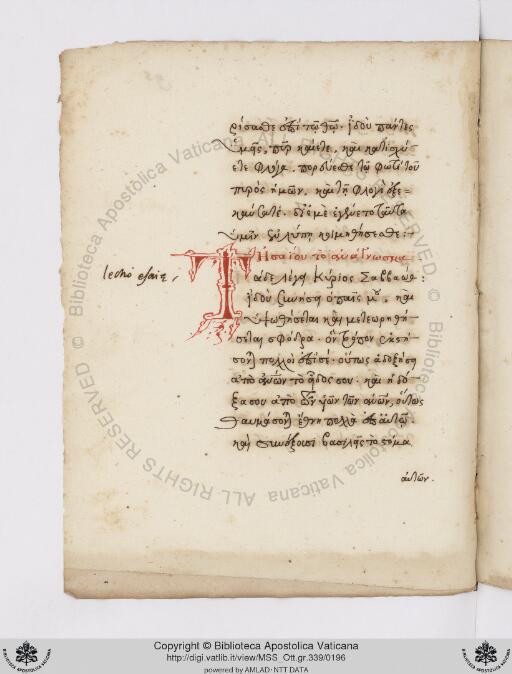 ρίσασθε ἐπὶ τῷ θῷ. ἰδοὺ πάντες
ὑμεῖς, πῦρ καίετε, καὶ κατισχύ
ετε φλόγα. πορεύεσθε τῷ φωτὶ τοῦ
πυρὸς ἡμῶν, καὶ τῇ φλογὶ ᾗ ἐξε=
καύσατε. δι' ἐμὲ ἐγένετο ταῦτα
ὑμῖν, ἐν λύπῃ κοιμηθήσεσθε:
Ησαΐου τὸ ἀνάγνωσμα
Τάδε λέγει Κύριος Σαββαώθ:
lectio esaie,
ἰδοὺ συνήσει ὁ παῖς μου, καὶ
ὑψωθήσεται καὶ μετεωρηθή
σεται σφόδρα. ὃν τρόπον ἐκστή
σονται πολλοὶ ἐπὶ σέ. οὕτως ἀδοξήσει
ἀπὸ ἀνῶν τὸ εἶδος σου. καὶ ἡ δό
ξα σου ἀπὸ τῶν ἀνῶν, οὕτως
θαυμάσονται ἔθνη πολλὰ ἐπ' αὐτῷ.
καὶ συνέξουσι βασιλεῖς τὸ στόμα
αὐτῶν.
© Biblioteca Apostolica Vaticana ALL RIGHTS RESERVED
Copyright © Biblioteca Apostolica Vaticana
http://digi.vatlib.it/view/MSS_Ott.gr.339/0196
powered by AMLAD·NTT DATA